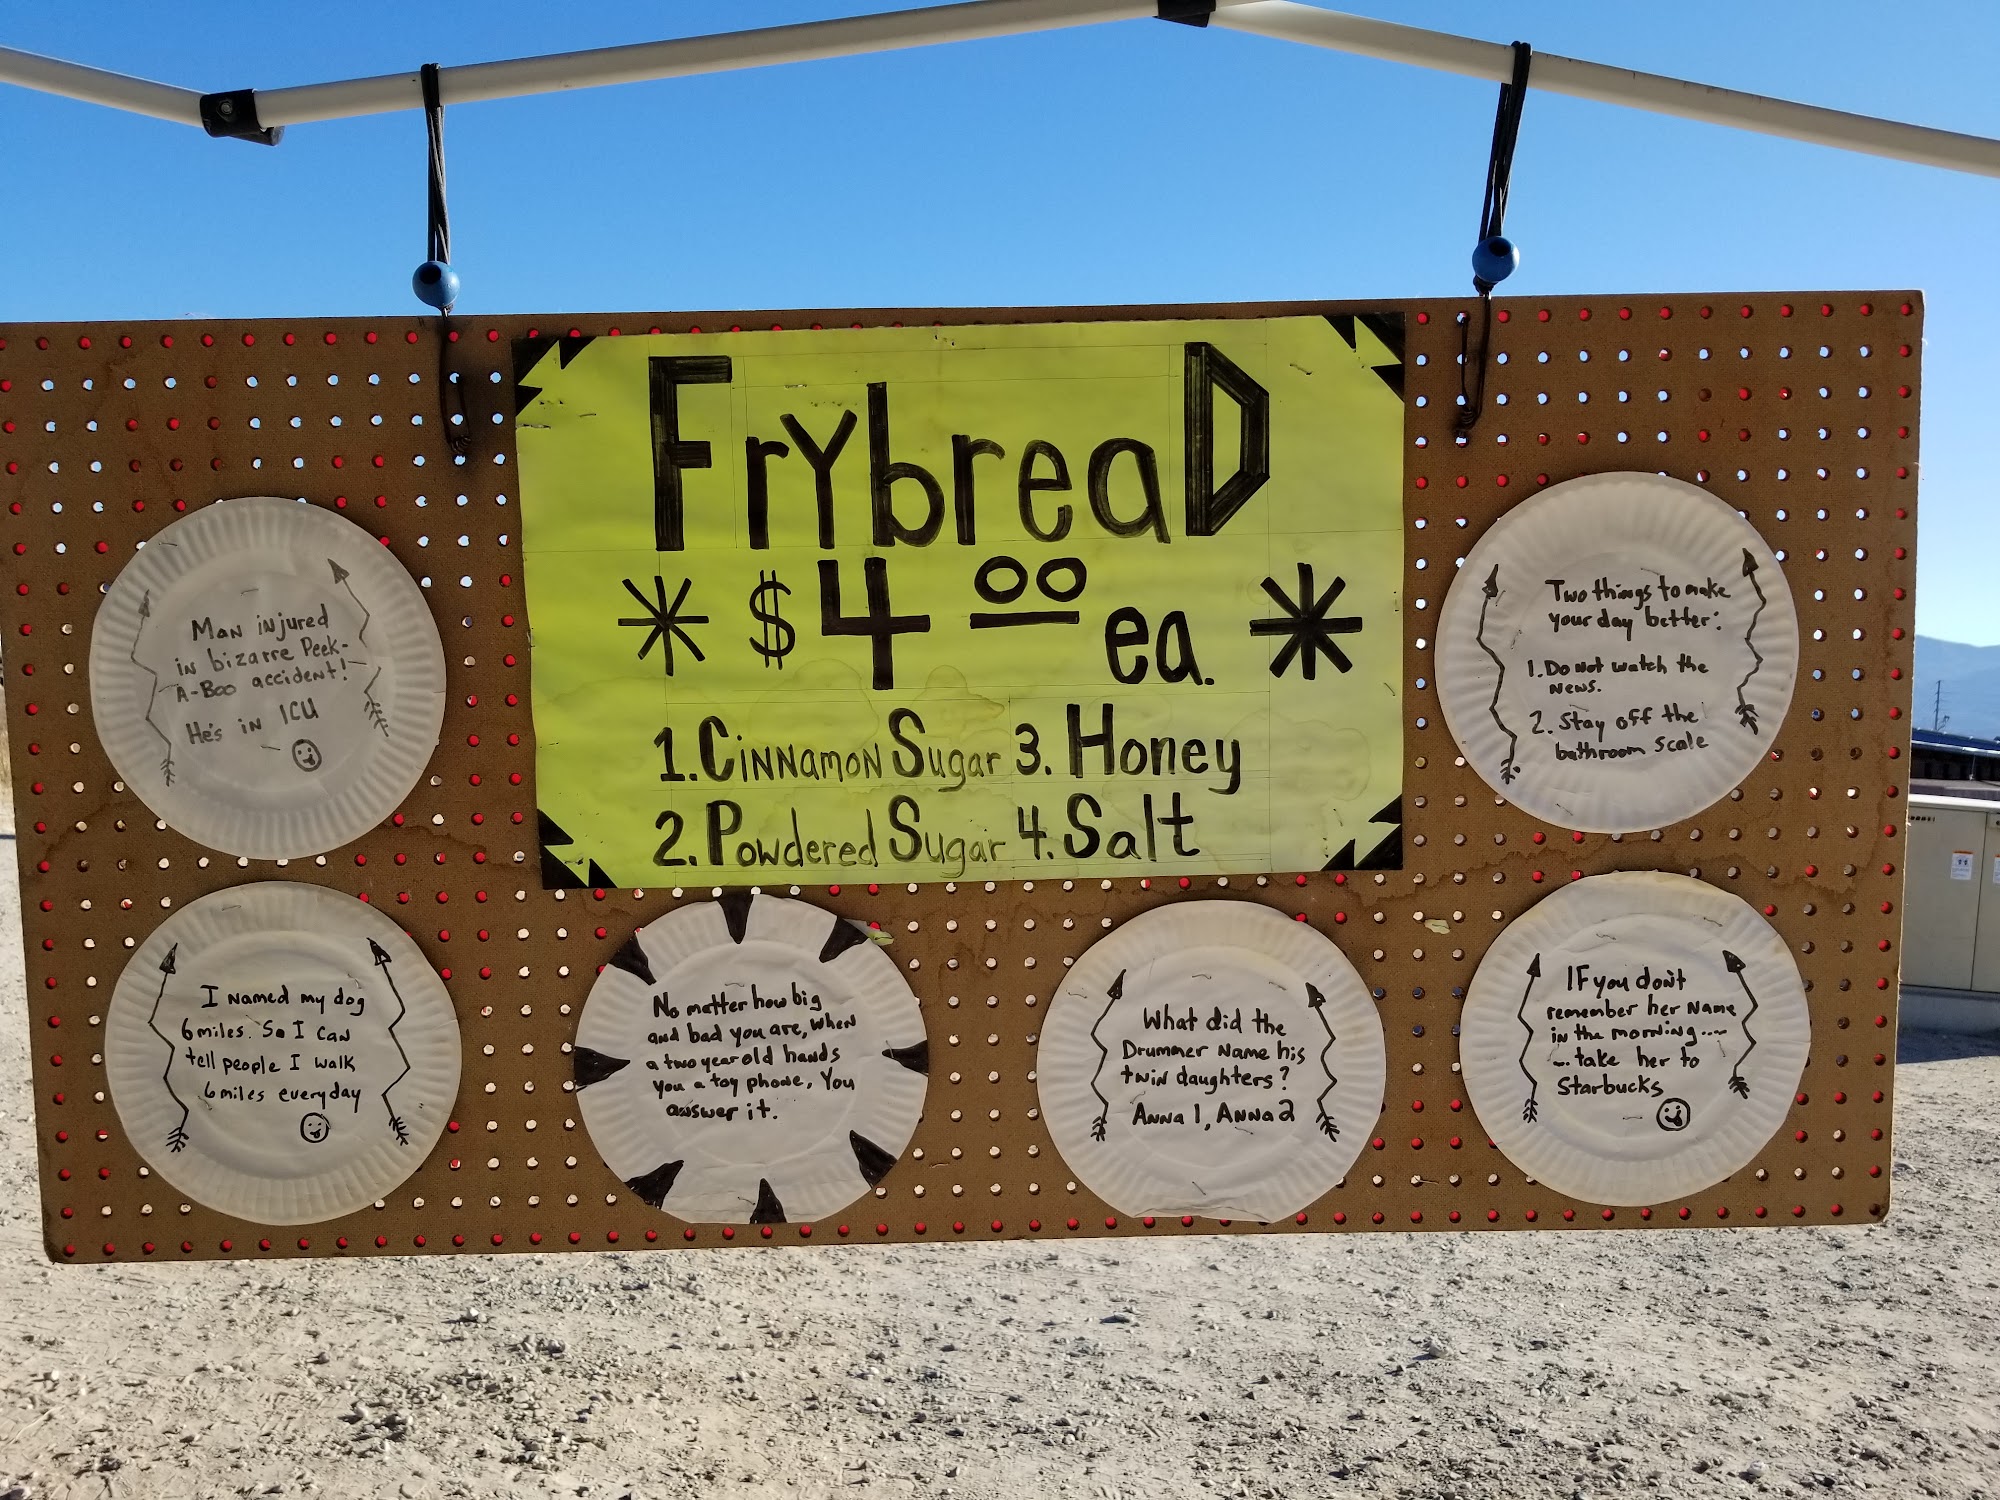 FrybreaD
* $4 00 ea. *
1. Cinnamon Sugar 3. Honey
2. Powdered Sugar 4. Salt
Man injured
in bizarre Peek-
A-Boo accident!
He's in ICU
Two things to make
your day better:
1. Do not watch the
news.
2. Stay off the
bathroom scale
I named my dog
6 miles. So I can
tell people I walk
6 miles everyday
No matter how big
and bad you are, when
a two year old hands
you a toy phone, You
answer it.
What did the
Drummer Name his
twin daughters?
Anna 1, Anna 2
If you don't
remember her name
in the morning....
... take her to
Starbucks